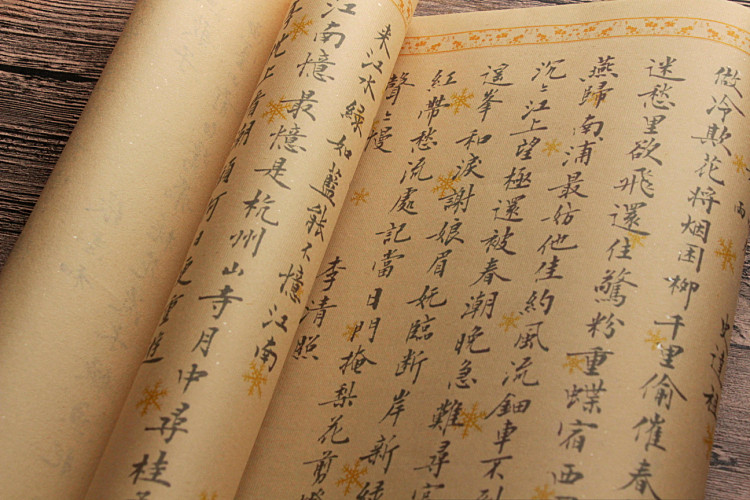 雨 史達祖
做冷欺花將烟困柳千里偷催春
迷愁里欲飛還住驚粉重蝶宿西
燕歸南浦最妨他佳約風流鈿車不到
沉〻江上望極還被春潮晚急難尋官
遙峯和淚謝娘眉妩臨斷岸新綠
紅帶愁流處記當日門掩梨花剪燈
聲〻慢 李清照
來江水綠如藍能不憶江南
江南憶最憶是杭州山寺月中尋桂
枕上看潮頭何日更重遊